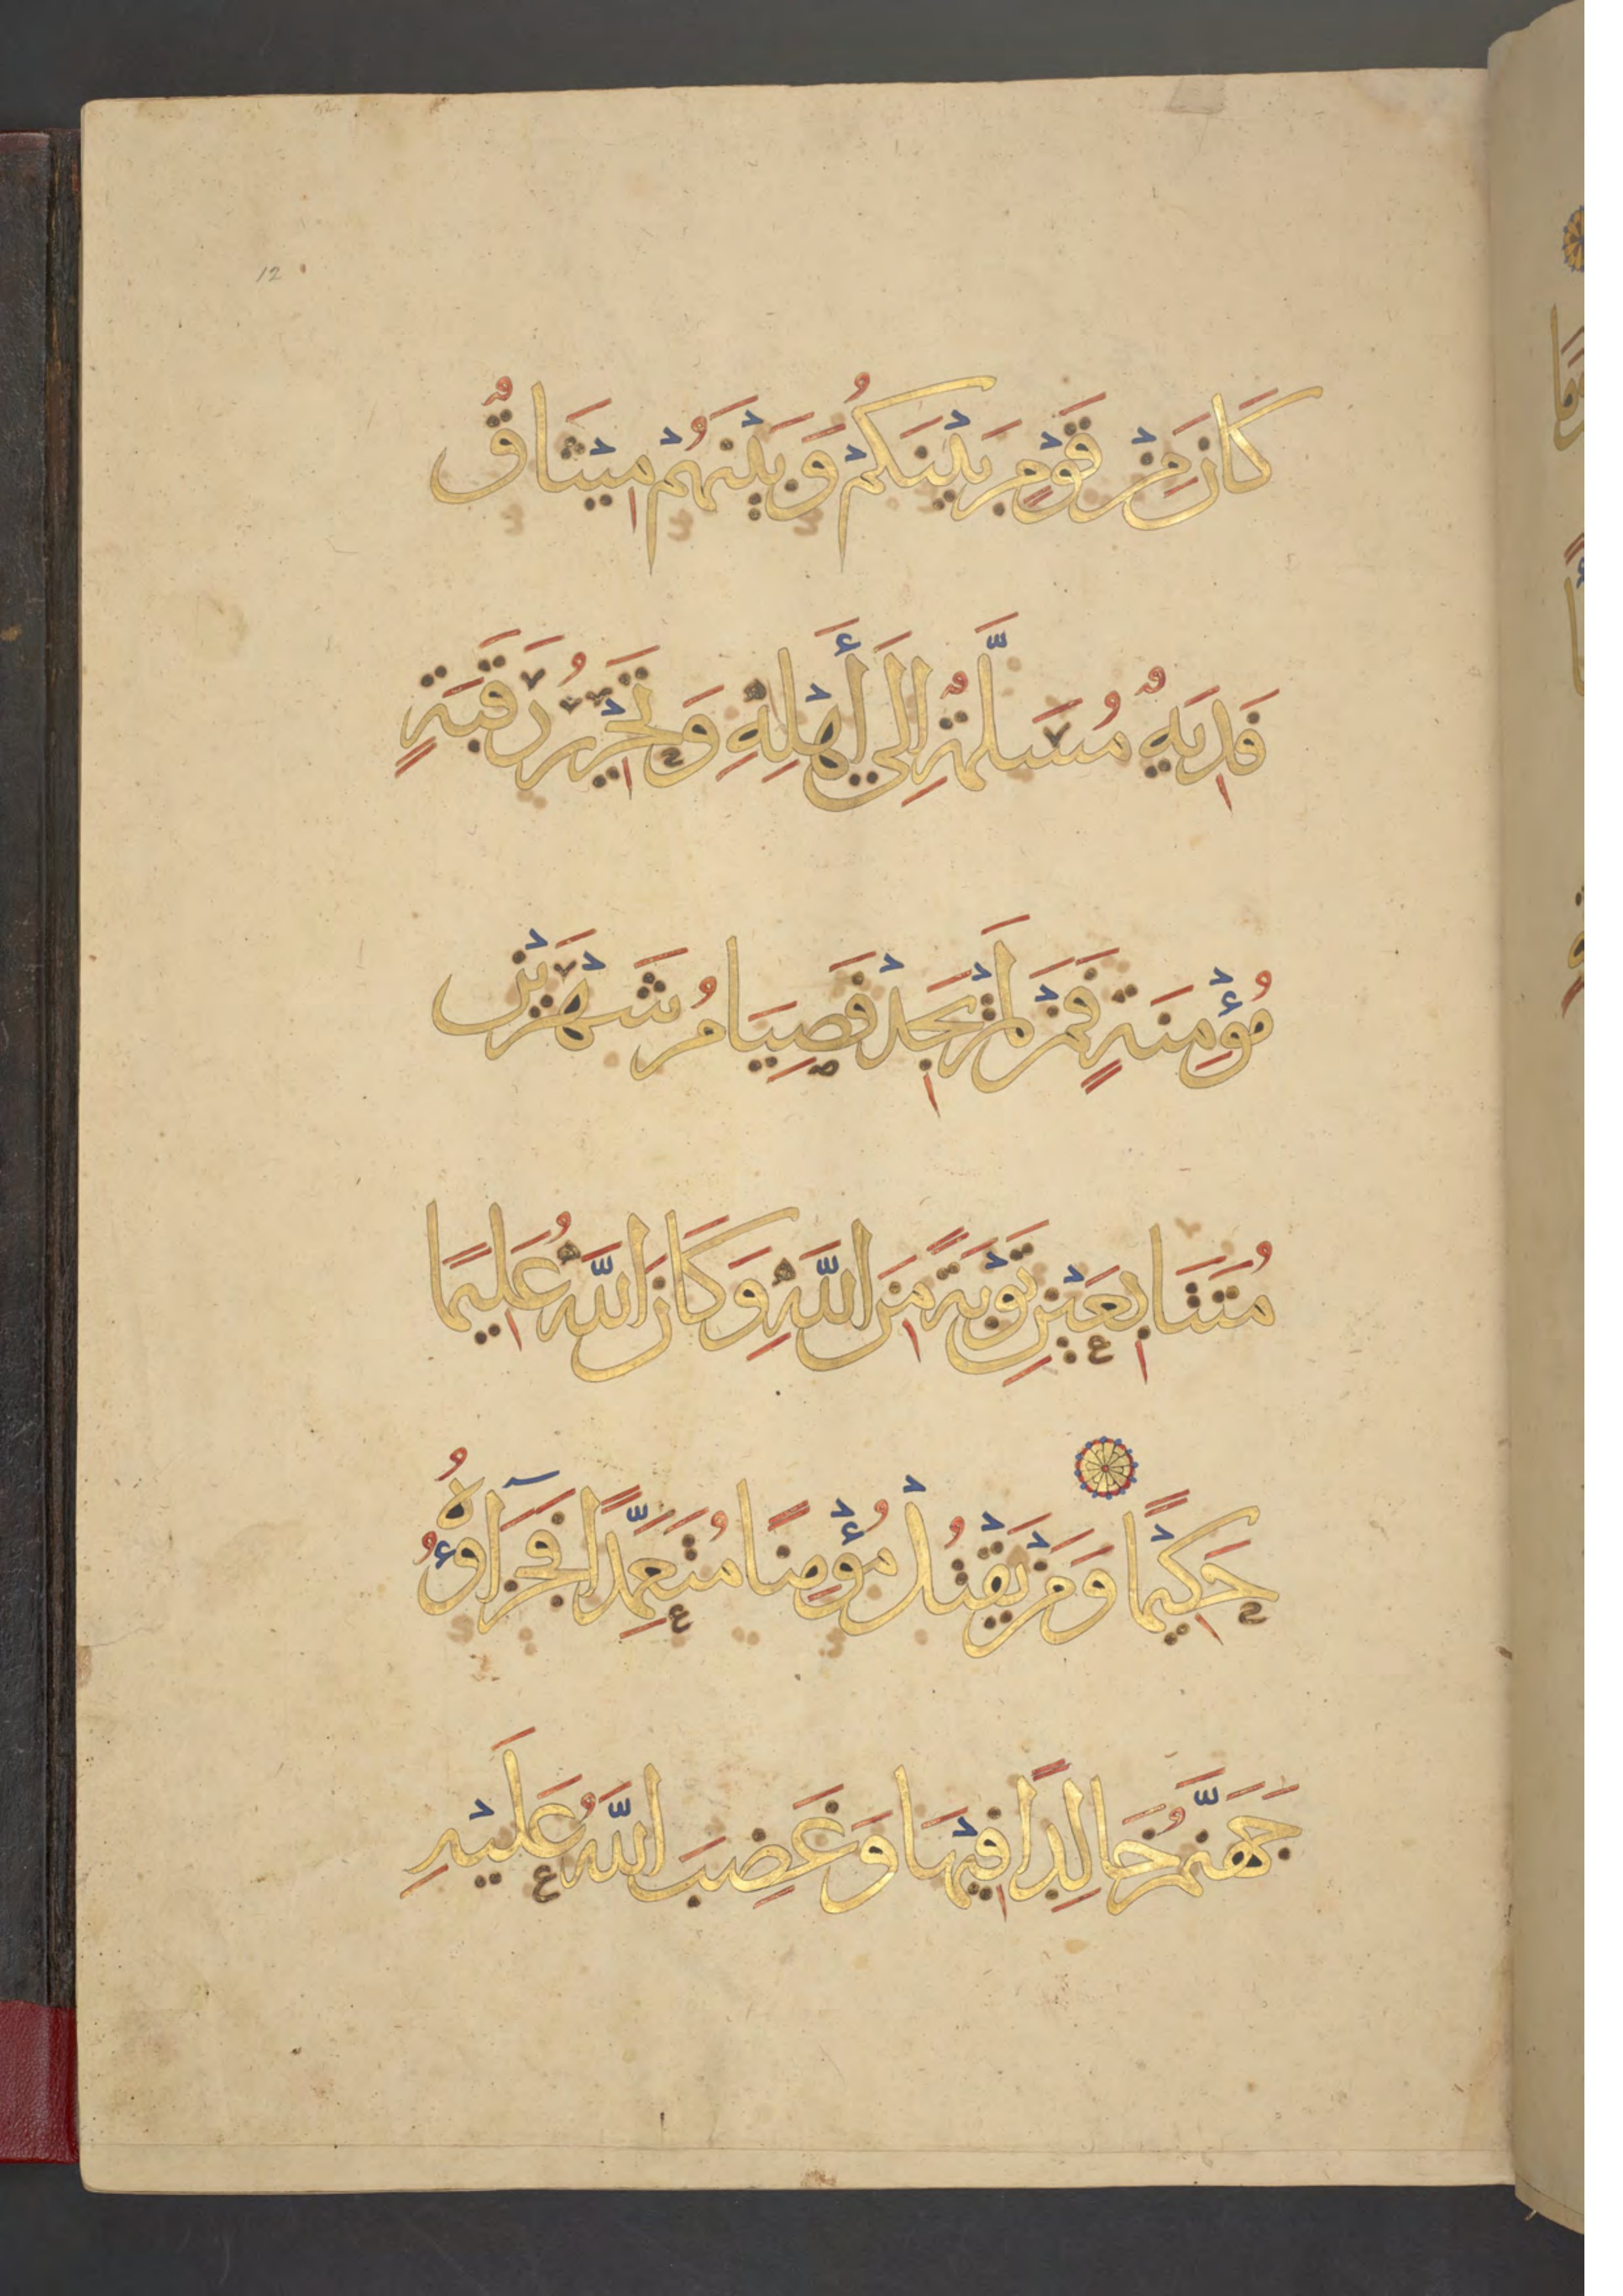 12
كَانَ مِنْ قَوْمٍ بَيْنَكُمْ وَبَيْنَهُمْ مِيْثَاقٌ
فَدِيَةٌ مُسَلَّمَةٌ إِلَى أَهْلِهِ وَتَحْرِيْرُ رَقَبَةٍ
مُؤْمِنَةٍ فَمَنْ لَمْ يَجِدْ فَصِيَامُ شَهْرَيْنِ
مُتَتَابِعَيْنِ تَوْبَةً مِنَ اللَّهِ وَكَانَ اللَّهُ عَلِيمًا
حَكِيْمًا وَمَنْ يَقْتُلْ مُؤْمِنًا مُتَعَمِّدًا فَجَزَآؤُهُ
جَهَنَّمُ خَالِدًا فِيْهَا وَغَضِبَ اللَّهُ عَلَيْهِ